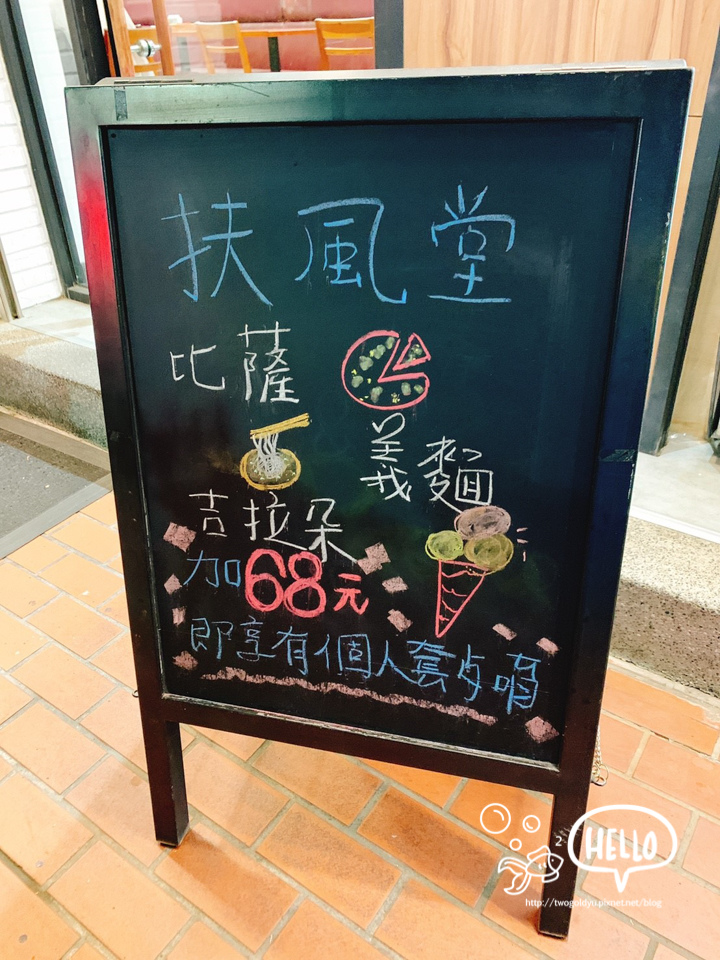 扶風堂
比薩
義麵
吉拉朵
加68元
即享有個人套歺唷
HELLO
http://twogoldyu.pixnet.net/blog